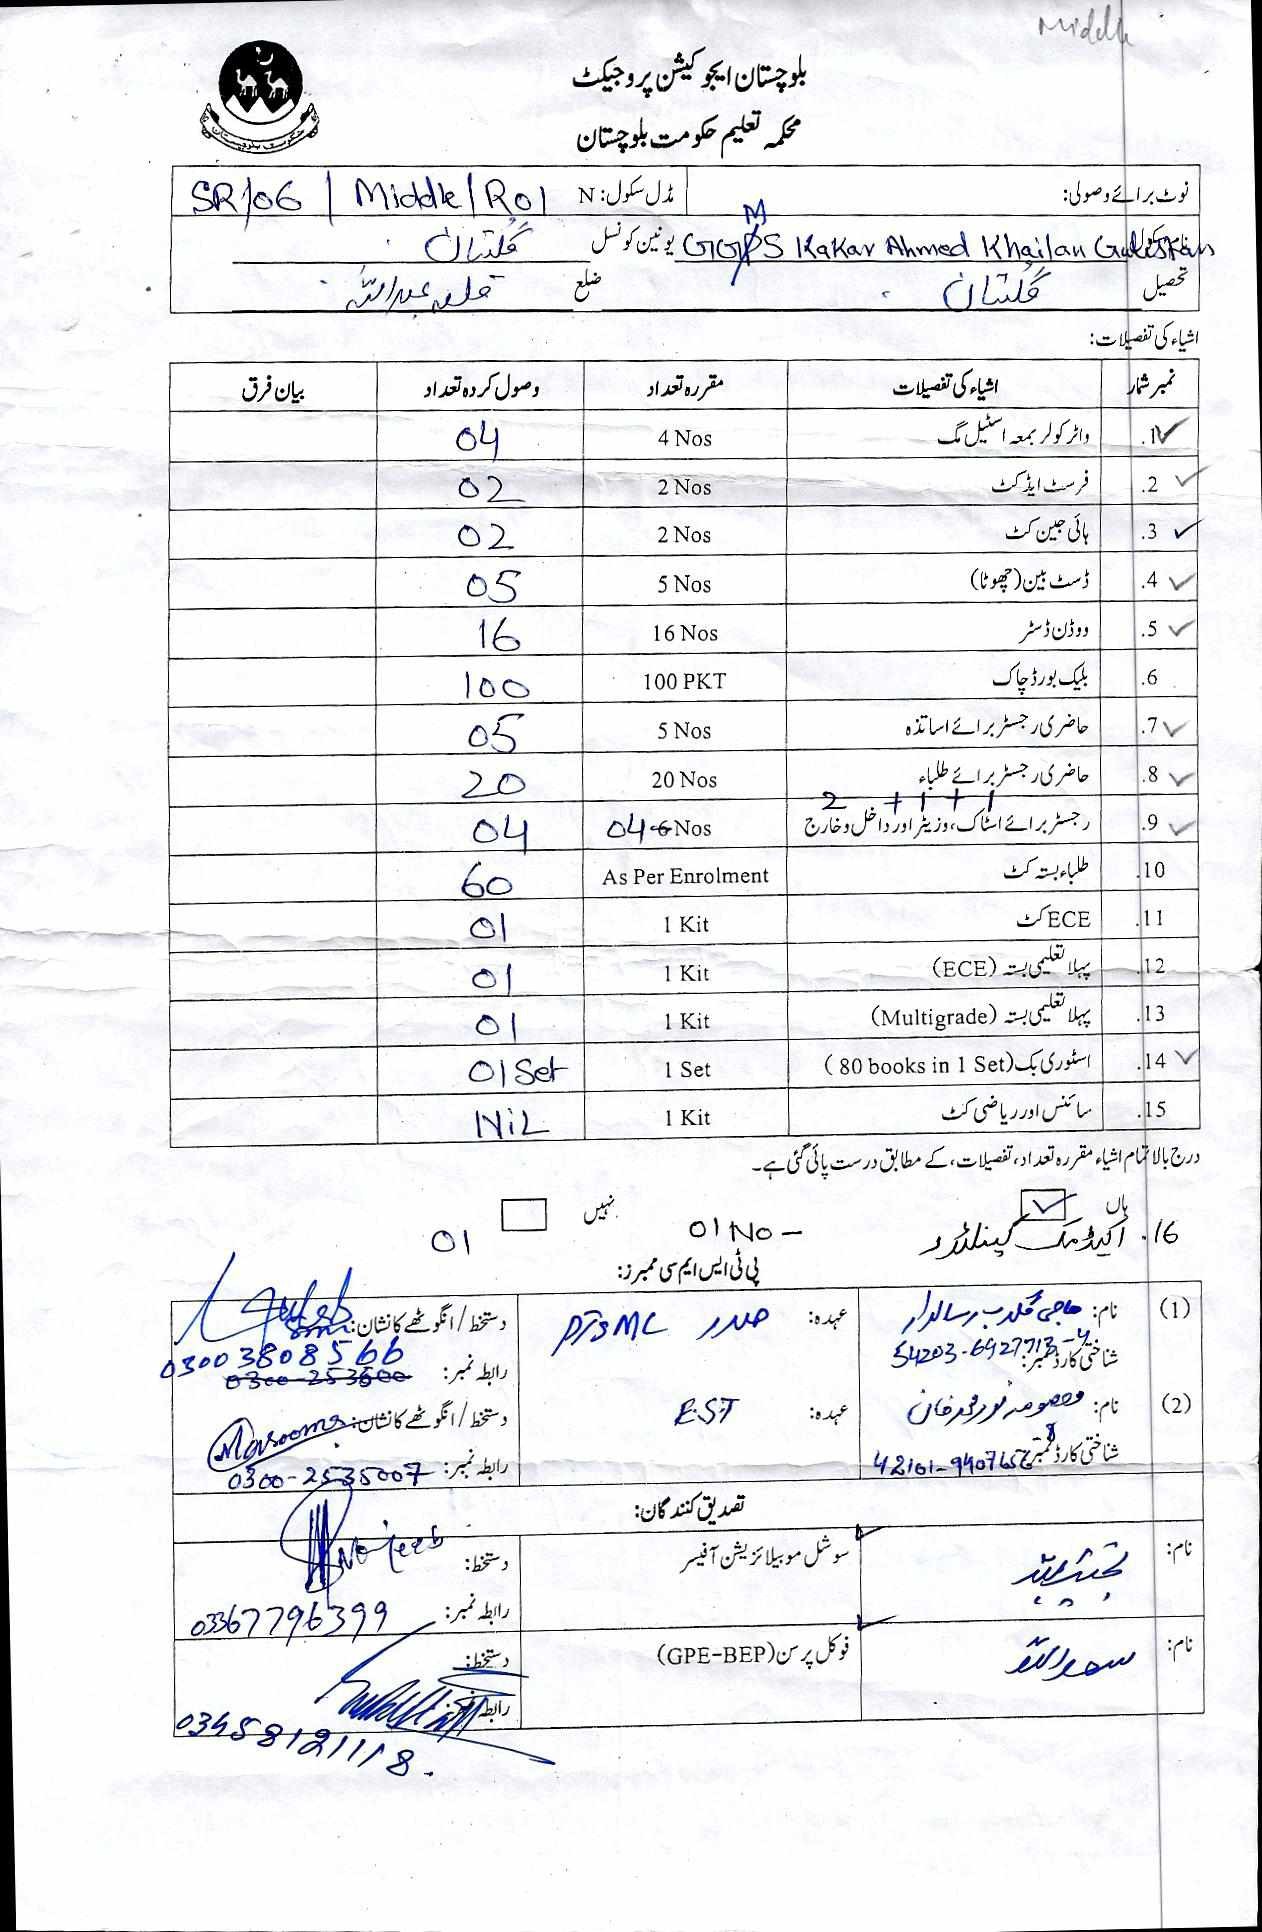 Middle
بلوچستان ایجوکیشن پروجیکٹ
محکمہ تعلیم حکومت بلوچستان
حکومت بلوچستان
نوٹ برائے وصولی: مڈل سکول: N SR/06 / Middle/R01
GGMS Kakar Ahmed Khailan Gulistan یونین کونسل گلستان
تحصیل گلستان ضلع قلعہ عبداللہ
اشیاء کی تفصیلات:
نمبر شمار اشیاء کی تفصیلات مقررہ تعداد وصول کردہ تعداد بیان فرق
1. واٹر کولر بمعہ اسٹیل مگ 4 Nos 04
2. فرسٹ ایڈ کٹ 2 Nos 02
3. ہائی جین کٹ 2 Nos 02
4. ڈسٹ بین (چھوٹا) 5 Nos 05
5. ووڈن ڈسٹر 16 Nos 16
6. بلیک بورڈ چاک 100 PKT 100
7. حاضری رجسٹر برائے اساتذہ 5 Nos 05
8. حاضری رجسٹر برائے طلباء 20 Nos 20
2 + 1 + 1
9. رجسٹر برائے اسٹاک، وزیٹر اور داخل و خارج 04 6 Nos 04
10. طلباء بستہ کٹ As Per Enrolment 60
11. ECE کٹ 1 Kit 01
12. پہلا تعلیمی بستہ (ECE) 1 Kit 01
13. پہلا تعلیمی بستہ (Multigrade) 1 Kit 01
14. اسٹوری بک (80 books in 1 Set) 1 Set 01 Set
15. سائنس اور ریاضی کٹ 1 Kit NiL
درج بالا تمام اشیاء مقررہ تعداد، تفصیلات، کے مطابق درست پائی گئی ہے۔
ہاں نہیں
16. اکیڈمک کیلنڈر 01 No - 01
پی ٹی ایس ایم سی ممبرز:
(1) نام: حاجی گلاب رسالدار عہدہ: صدر PTSMC دستخط/انگوٹھے کا نشان:
شناختی کارڈ نمبر: 54203-6927713-4 رابطہ نمبر: 03003808566
0300-253600
(2) نام: معصومہ نور محمد خان عہدہ: EST دستخط/انگوٹھے کا نشان: Masooma
شناختی کارڈ نمبر: رابطہ نمبر: 0300-2535007
تصدیق کنندگان:
نام: سوشل موبیلائزیشن آفیسر دستخط: Najeeb
رابطہ نمبر: 03367796399
نام: فوکل پرسن (GPE-BEP) دستخط:
رابطہ نمبر:
03458121118.